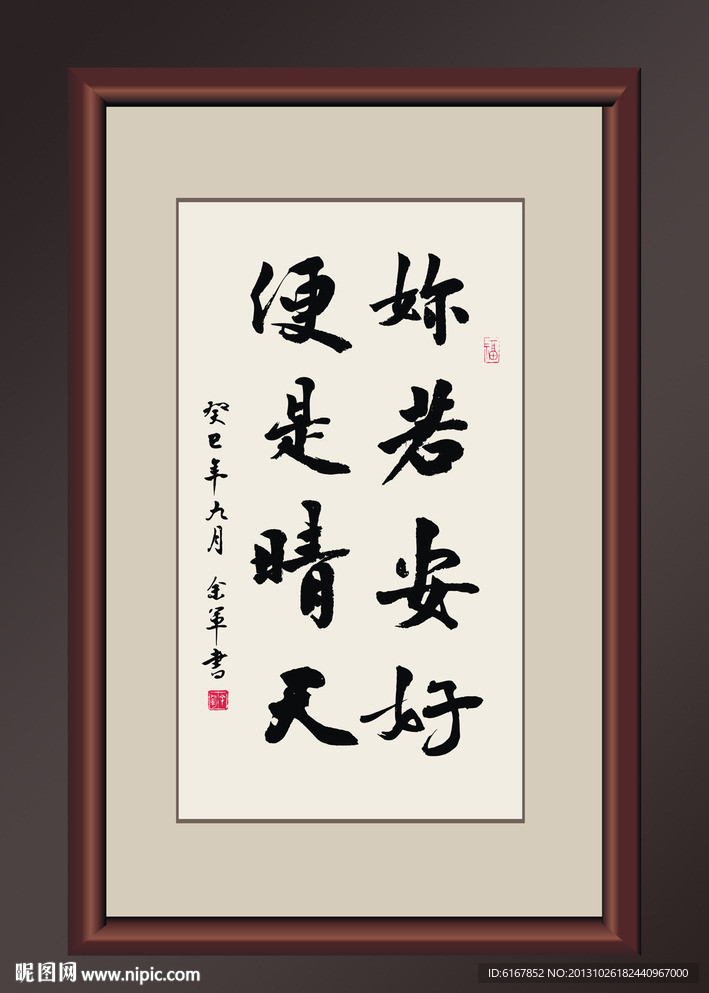 妳若安好
便是晴天
癸巳年九月 金军書
福
昵图网 www.nipic.com
ID:6167852 NO:20131026182440967000